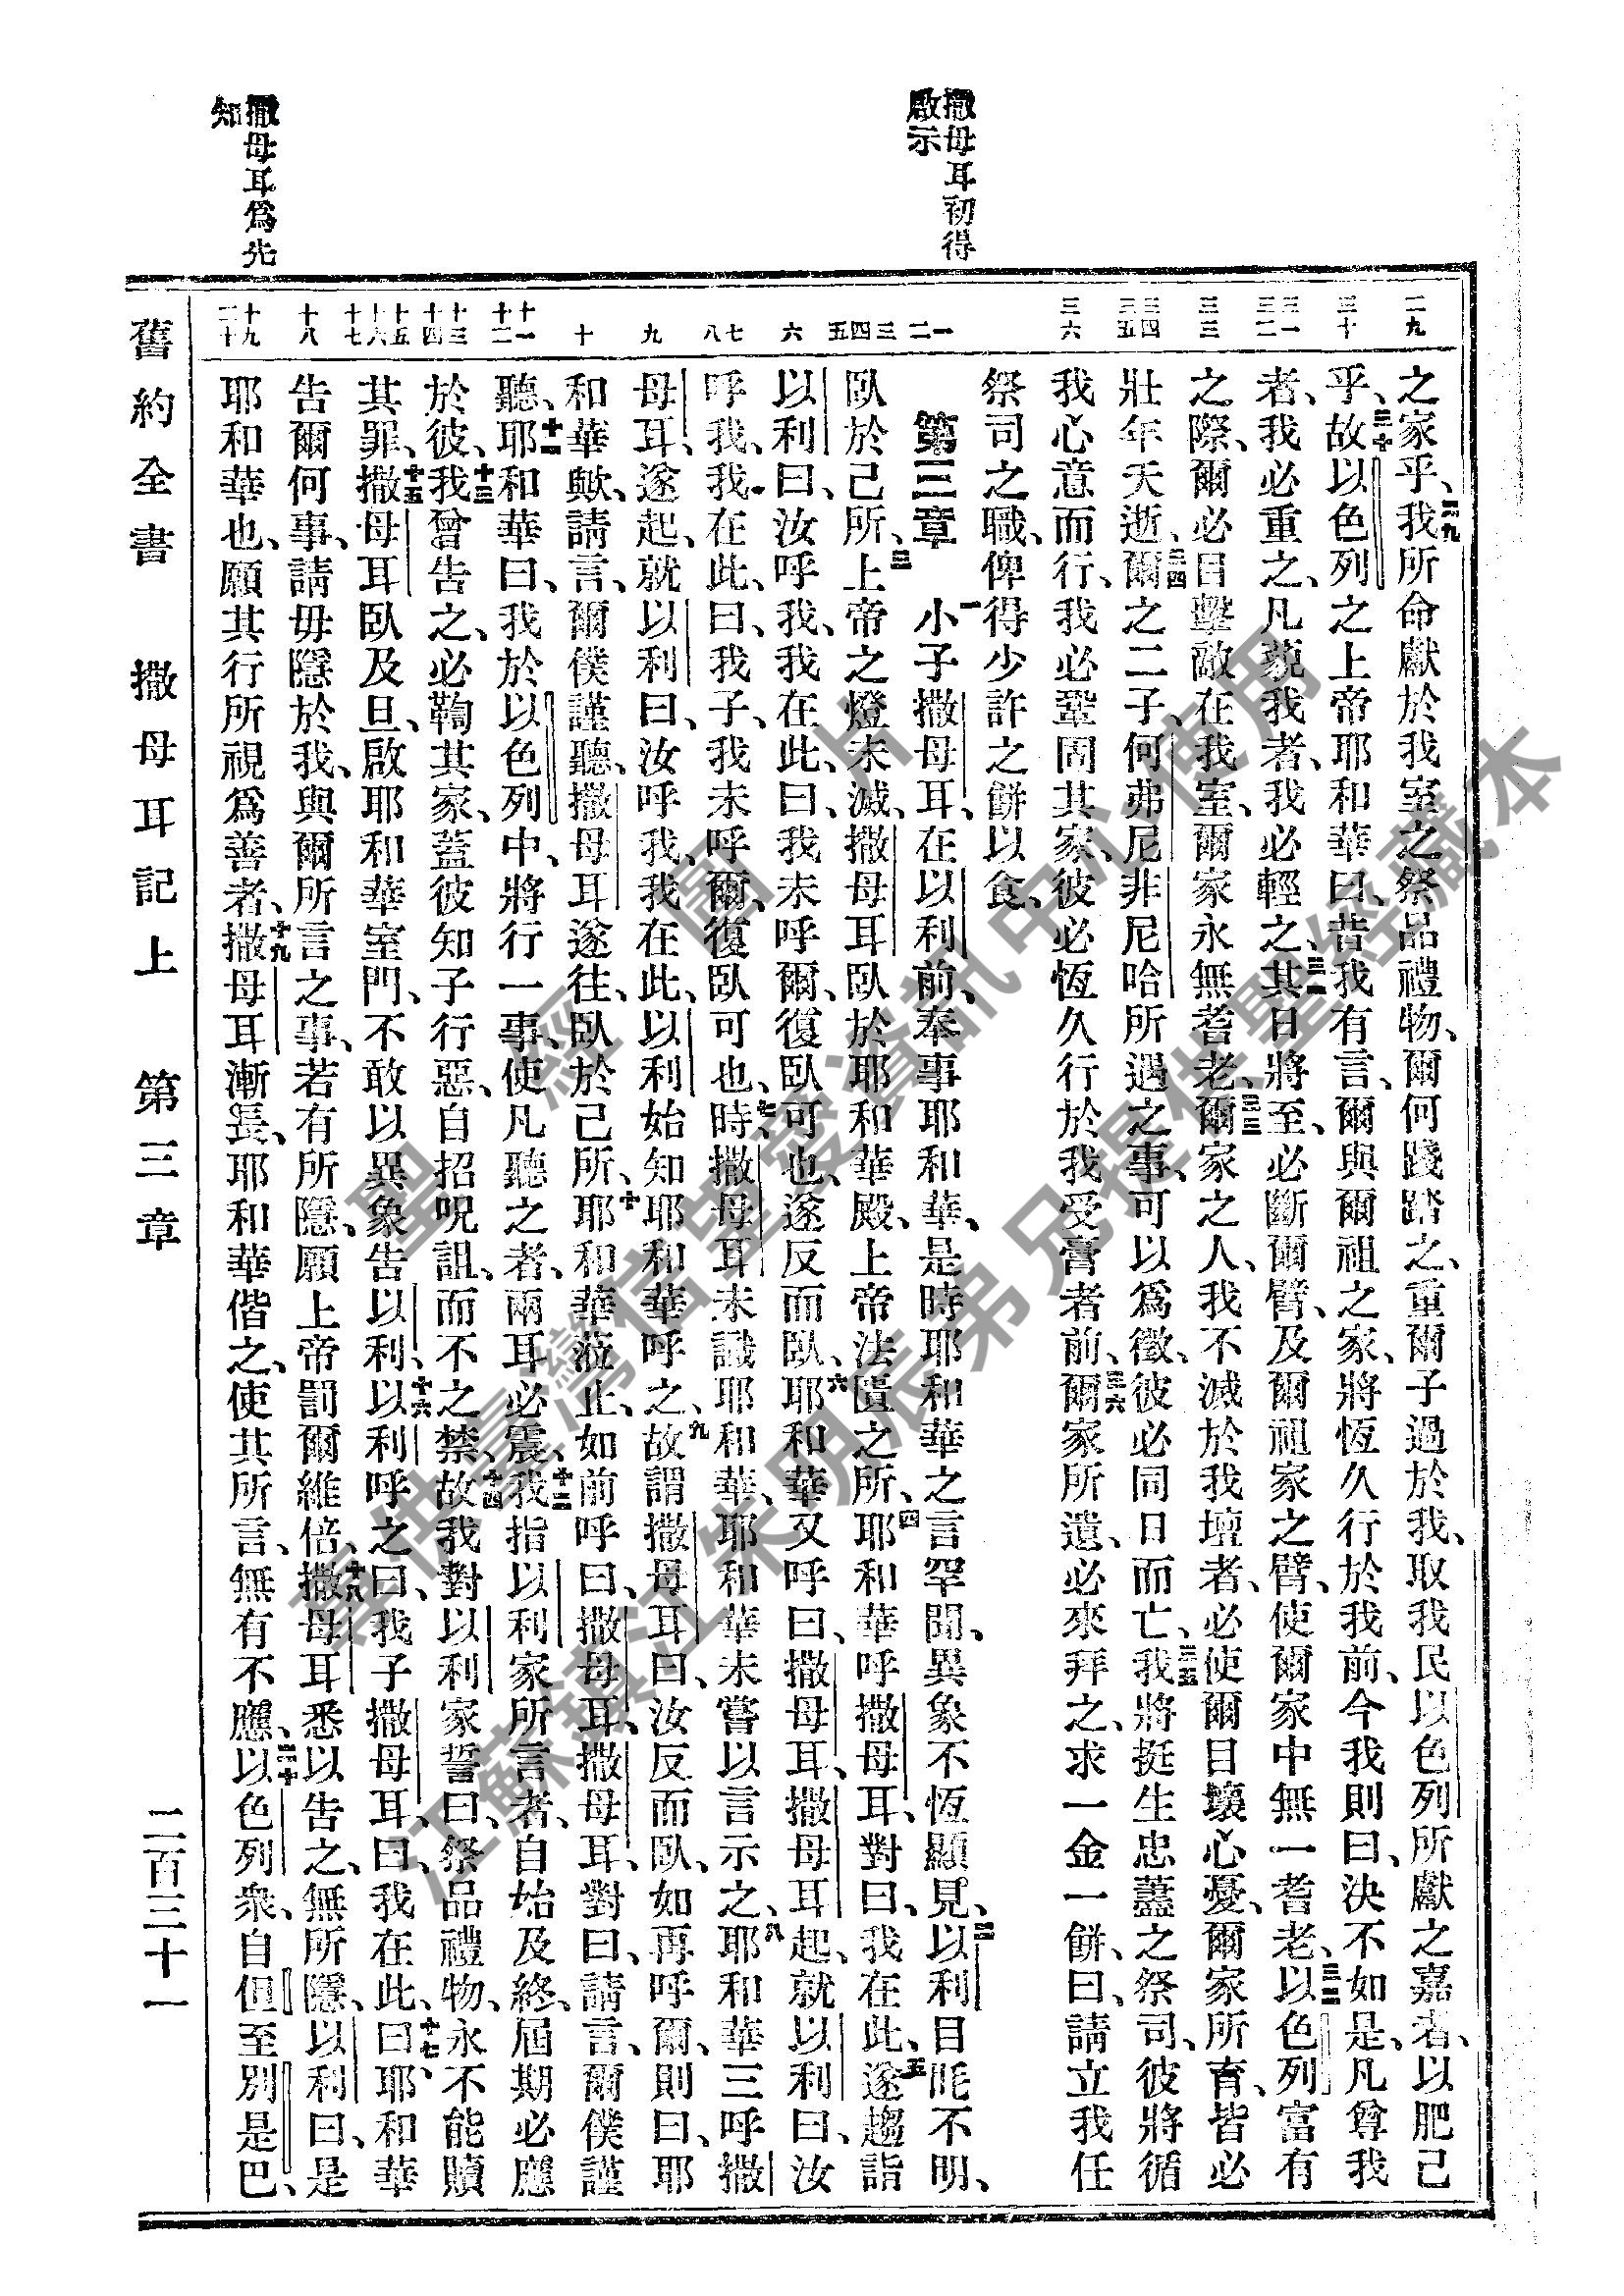 撒母耳初得
啟示
撒母耳爲先
知
二九
三十
三一
三二
三三
三四
三五
三六
一
二
三
四
五
六
七
八
九
十
十一
十二
十三
十四
十五
十六
十七
十八
十九
二十
之家乎、二九我所命獻於我室之祭品禮物、爾何踐踏之、重爾子過於我、取我民以色列所獻之嘉者、以肥己
乎、三十故以色列之上帝耶和華曰、昔我有言、爾與爾祖之家、將恆久行於我前、今我則曰、決不如是、凡尊我
者、我必重之、凡藐我者、我必輕之、三一其日將至、必斷爾臂、及爾祖家之臂、使爾家中無一耆老、三二以色列富有
之際、爾必目擊敵在我室、爾家永無耆老、三三爾家之人、我不滅於我壇者、必使爾目壞心憂、爾家所育、皆必
壯年夭逝、三四爾之二子、何弗尼非尼哈所遇之事、可以爲徵、彼必同日而亡、三五我將挺生忠藎之祭司、彼將循
我心意而行、我必鞏固其家、彼必恆久行於我受膏者前、三六爾家所遺、必來拜之、求一金一餅、曰、請立我任
祭司之職、俾得少許之餅以食、
第三章 一小子撒母耳、在以利前、奉事耶和華、是時耶和華之言罕聞、異象不恆顯見、二以利目眊不明、
臥於己所、三上帝之燈未滅、撒母耳臥於耶和華殿、上帝法匱之所、四耶和華呼撒母耳、對曰、我在此、五遂趨詣
以利曰、汝呼我、我在此、曰、我未呼爾、復臥可也、遂反而臥、六耶和華又呼曰、撒母耳、撒母耳起、就以利曰、汝
呼我、我在此、曰、我子、我未呼爾、復臥可也、七時、撒母耳未識耶和華、耶和華未嘗以言示之、八耶和華三呼撒
母耳、遂起、就以利曰、汝呼我、我在此、以利始知耶和華呼之、九故謂撒母耳曰、汝反而臥、如再呼爾、則曰、耶
和華歟、請言、爾僕謹聽、撒母耳遂往、臥於己所、十耶和華蒞止、如前呼曰、撒母耳、撒母耳、對曰、請言、爾僕謹
聽、十一耶和華曰、我於以色列中、將行一事、使凡聽之者、兩耳必震、十二我指以利家所言者、自始及終、屆期必應
於彼、十三我曾告之、必鞫其家、蓋彼知子行惡、自招呪詛、而不之禁、十四故我對以利家誓曰、祭品禮物、永不能贖
其罪、十五撒母耳臥及旦、啟耶和華室門、不敢以異象告以利、十六以利呼之曰、我子撒母耳、曰、我在此、十七曰、耶和華
告爾何事、請毋隱於我、與爾所言之事、若有所隱、願上帝罰爾維倍、十八撒母耳悉以告之、無所隱、以利曰、是
耶和華也、願其行所視爲善者、十九撒母耳漸長、耶和華偕之、使其所言、無有不應、二十以色列衆、自但至別是巴、
舊約全書 撒母耳記上 第三章 二百三十一
聖經圖片
臺灣信望愛資訊中心使用
江蘇鎮江朱明辰弟兄提供聖經藏本